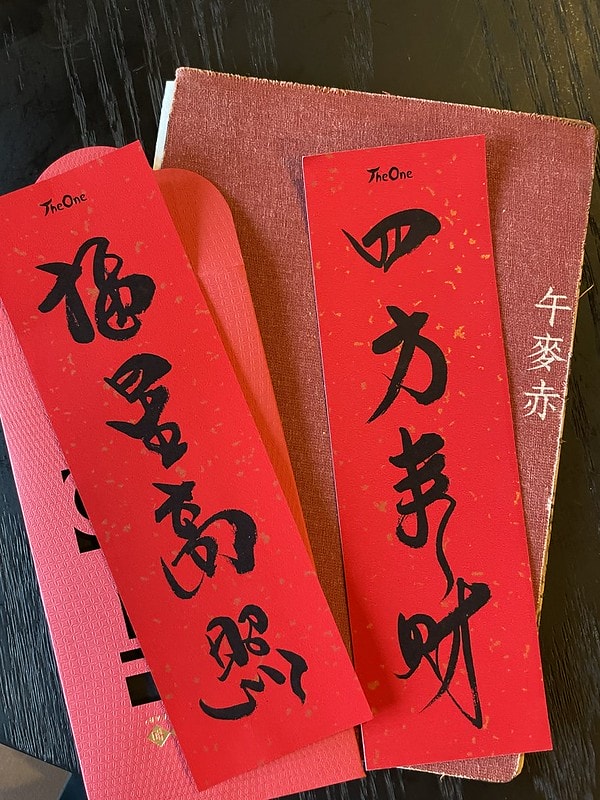 TheOne
福星高照
TheOne
四方來財
午麥赤